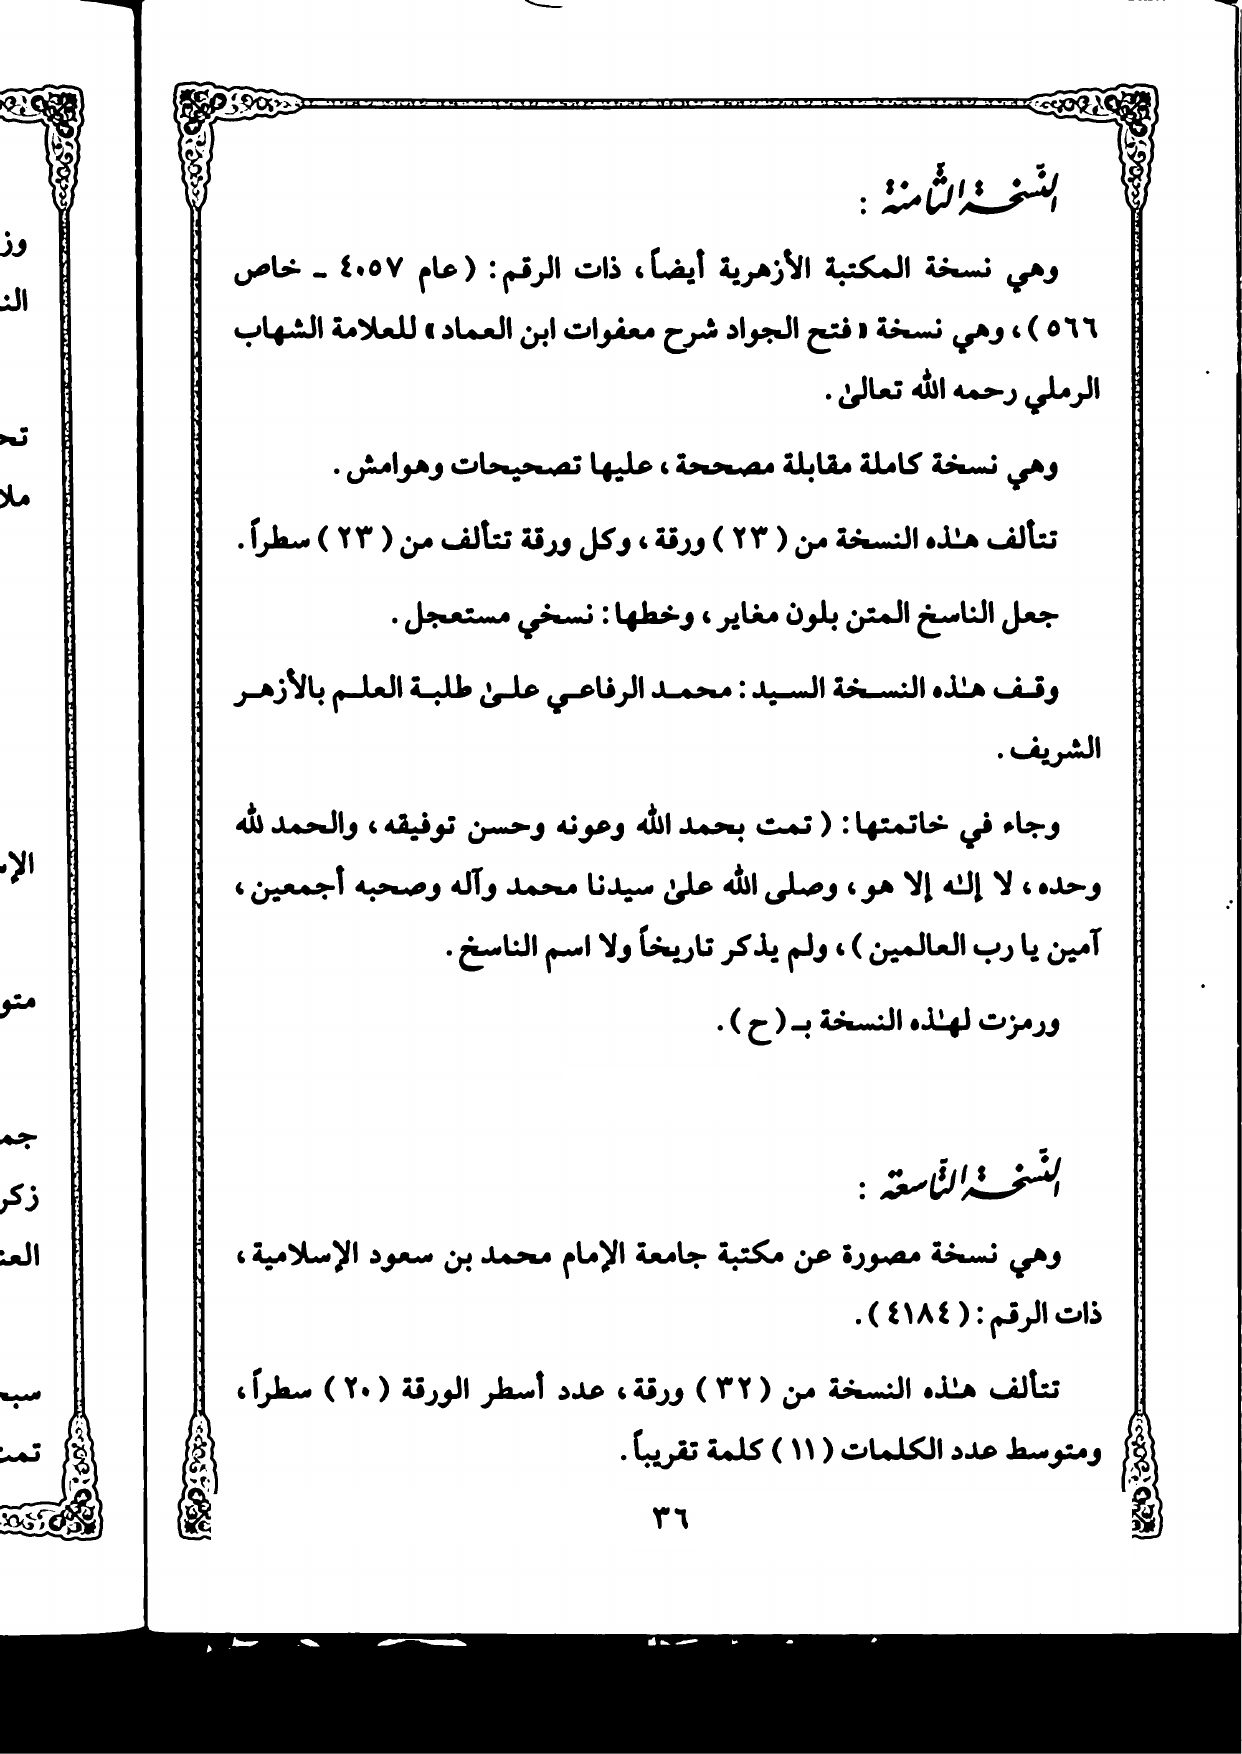 النّسخة الثّامنة :
وهي نسخة المكتبة الأزهرية أيضاً، ذات الرقم: ( عام ٤٠٥٧ ـ خاص
٥٦٦ )، وهي نسخة « فتح الجواد شرح معفوات ابن العماد » للعلامة الشهاب
الرملي رحمه الله تعالىٰ .
وهي نسخة كاملة مقابلة مصححة ، عليها تصحيحات وهوامش .
تتألف هـٰذه النسخة من ( ٢٣ ) ورقة ، وكل ورقة تتألف من ( ٢٣ ) سطراً .
جعل الناسخ المتن بلون مغاير ، وخطها : نسخي مستعجل .
وقف هـٰذه النسخة السيد : محمد الرفاعي علىٰ طلبة العلم بالأزهر
الشريف .
وجاء في خاتمتها : ( تمت بحمد الله وعونه وحسن توفيقه ، والحمد لله
وحده ، لا إلـٰه إلا هو ، وصلى الله علىٰ سيدنا محمد وآله وصحبه أجمعين ،
آمين يا رب العالمين ) ، ولم يذكر تاريخاً ولا اسم الناسخ .
ورمزت لهـٰذه النسخة بـ ( ح ) .
النّسخة التّاسعة :
وهي نسخة مصورة عن مكتبة جامعة الإمام محمد بن سعود الإسلامية ،
ذات الرقم : ( ٤١٨٤ ) .
تتألف هـٰذه النسخة من ( ٣٢ ) ورقة ، عدد أسطر الورقة ( ٢٠ ) سطراً ،
ومتوسط عدد الكلمات ( ١١ ) كلمة تقريباً .
٣٦